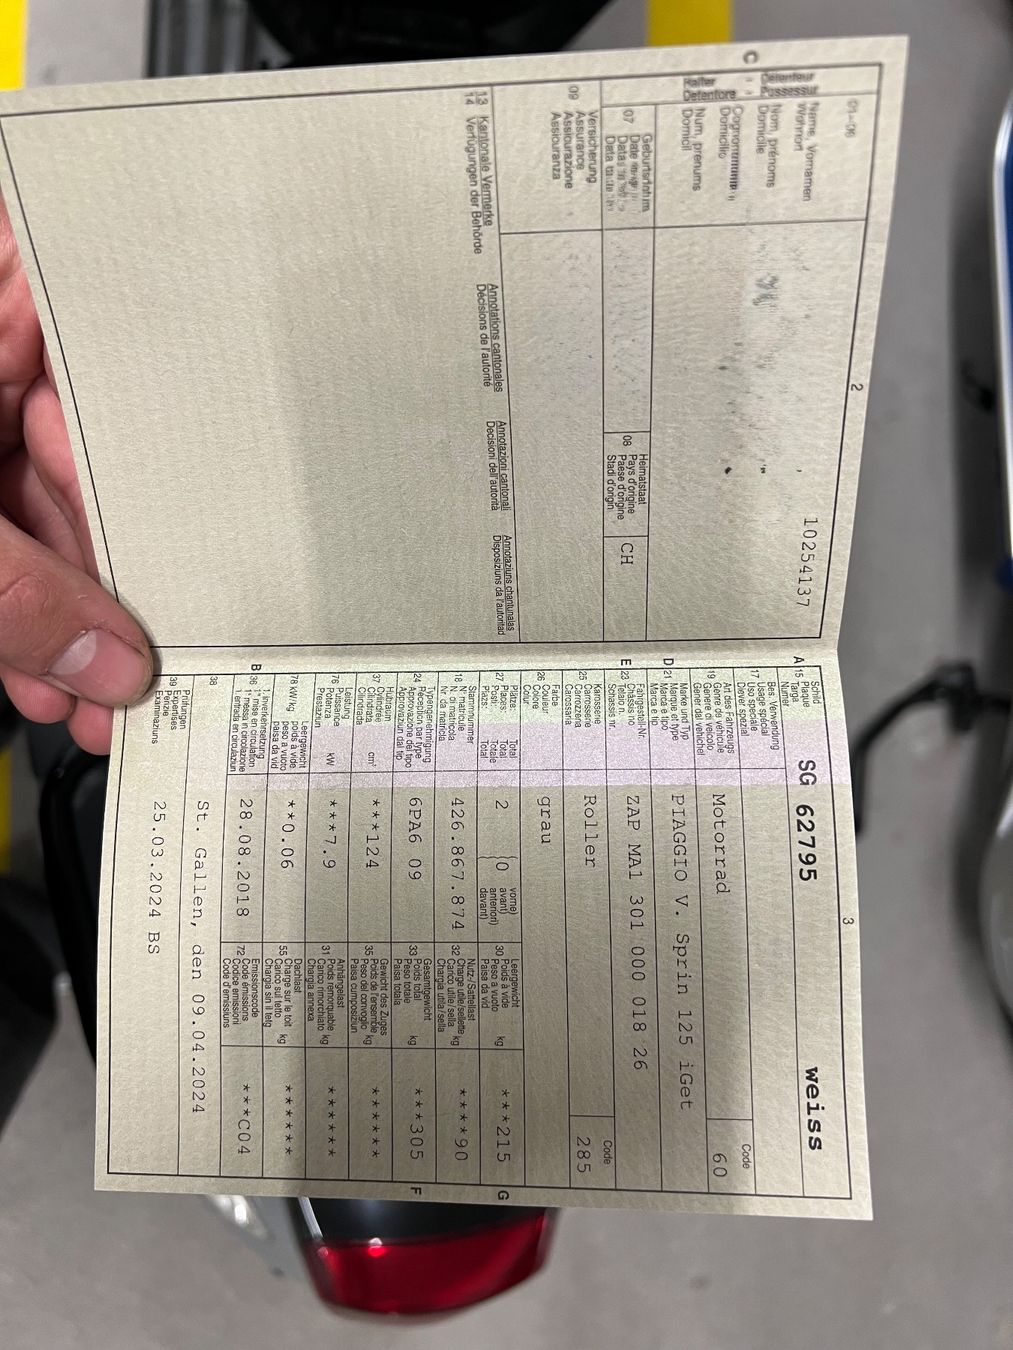 2
10254137
C
01-06
Name, Vornamen
Wohnort
Détenteur
Possessur
Nom, prénoms
Domicile
Halter
Detentore
Domicilio
Num, prenums
Domicil
07
08 Heimatstaat
Pays d'origine
Paese d'origine
Stadi d'origin
CH
09 Versicherung
Assurance
Assicurazione
Assicuranza
13 Kantonale Vermerke Annotations cantonales Annotazioni cantonali Annotaziuns chantunalas
14 Verfügungen der Behörde Décisions de l'autorité Decisioni dell'autorità Disposiziuns da l'autoritad
3
A 15 Schild
Plaque
Targa
Numer
SG 62795 weiss
17 Bes. Verwendung
Usage spécial
Uso speciale
Diever spezial
19 Art des Fahrzeugs
Genre de véhicule
Genere di veicolo
Gener dal vehichel
Motorrad
Code
60
D 21 Marke und Typ
Marque et type
Marca e tipo
Marca e tip
PIAGGIO V. Sprin 125 iGet
E 23 Fahrgestell-Nr.
Châssis no
Telaio n.
Schassis nr.
ZAP MA1 301 000 018 26
25 Karosserie
Carrosserie
Carrozzeria
Carossaria
Roller
Code
285
26 Farbe
Couleur
Colore
Colur
grau
27 Plätze: Total
Places: Total
Posti: Totale
Plazs: Total
2
(0 vorne)
avant)
anteriori)
davant)
30 Leergewicht
Poids à vide
Peso a vuoto
Paisa da vid
kg
***215
G
18 Stammnummer
N° matricule
N. matricola
Nr. da matricla
426.867.874
32 Nutz-/Sattellast
Charge utile/sellette
Carico utile/sella
Chargia utila/sella
kg
****90
24 Typengenehmigung
Réception par type
Approvazione del tipo
Approvaziun dal tip
6PA6 09
33 Gesamtgewicht
Poids total
Peso totale
Paisa totala
kg
***305
F
37 Hubraum
Cylindrée
Cilindrata
Cilindrada
cm³
***124
35 Gewicht des Zuges
Poids de l'ensemble
Peso del convoglio
Paisa cumposiziun
kg
******
76 Leistung
Puissance
Potenza
Prestaziun
kW
***7.9
31 Anhängelast
Poids remorquable
Carico rimorchiato
Chargia annexa
kg
******
78 kW/kg
Leergewicht
poids à vide
peso a vuoto
paisa da vid
**0.06
55 Dachlast
Charge sur le toit
Carico sul tetto
Chargia sin il tetg
kg
******
B 36 1. Inverkehrsetzung
1re mise en circulation
1a messa in circolazione
1. entrada en circulaziun
28.08.2018
72 Emissionscode
Code émissions
Codice emissioni
Code d'emissiuns
***C04
38
St. Gallen, den 09.04.2024
39 Prüfungen
Expertises
Perizie
Examinaziuns
25.03.2024 BS